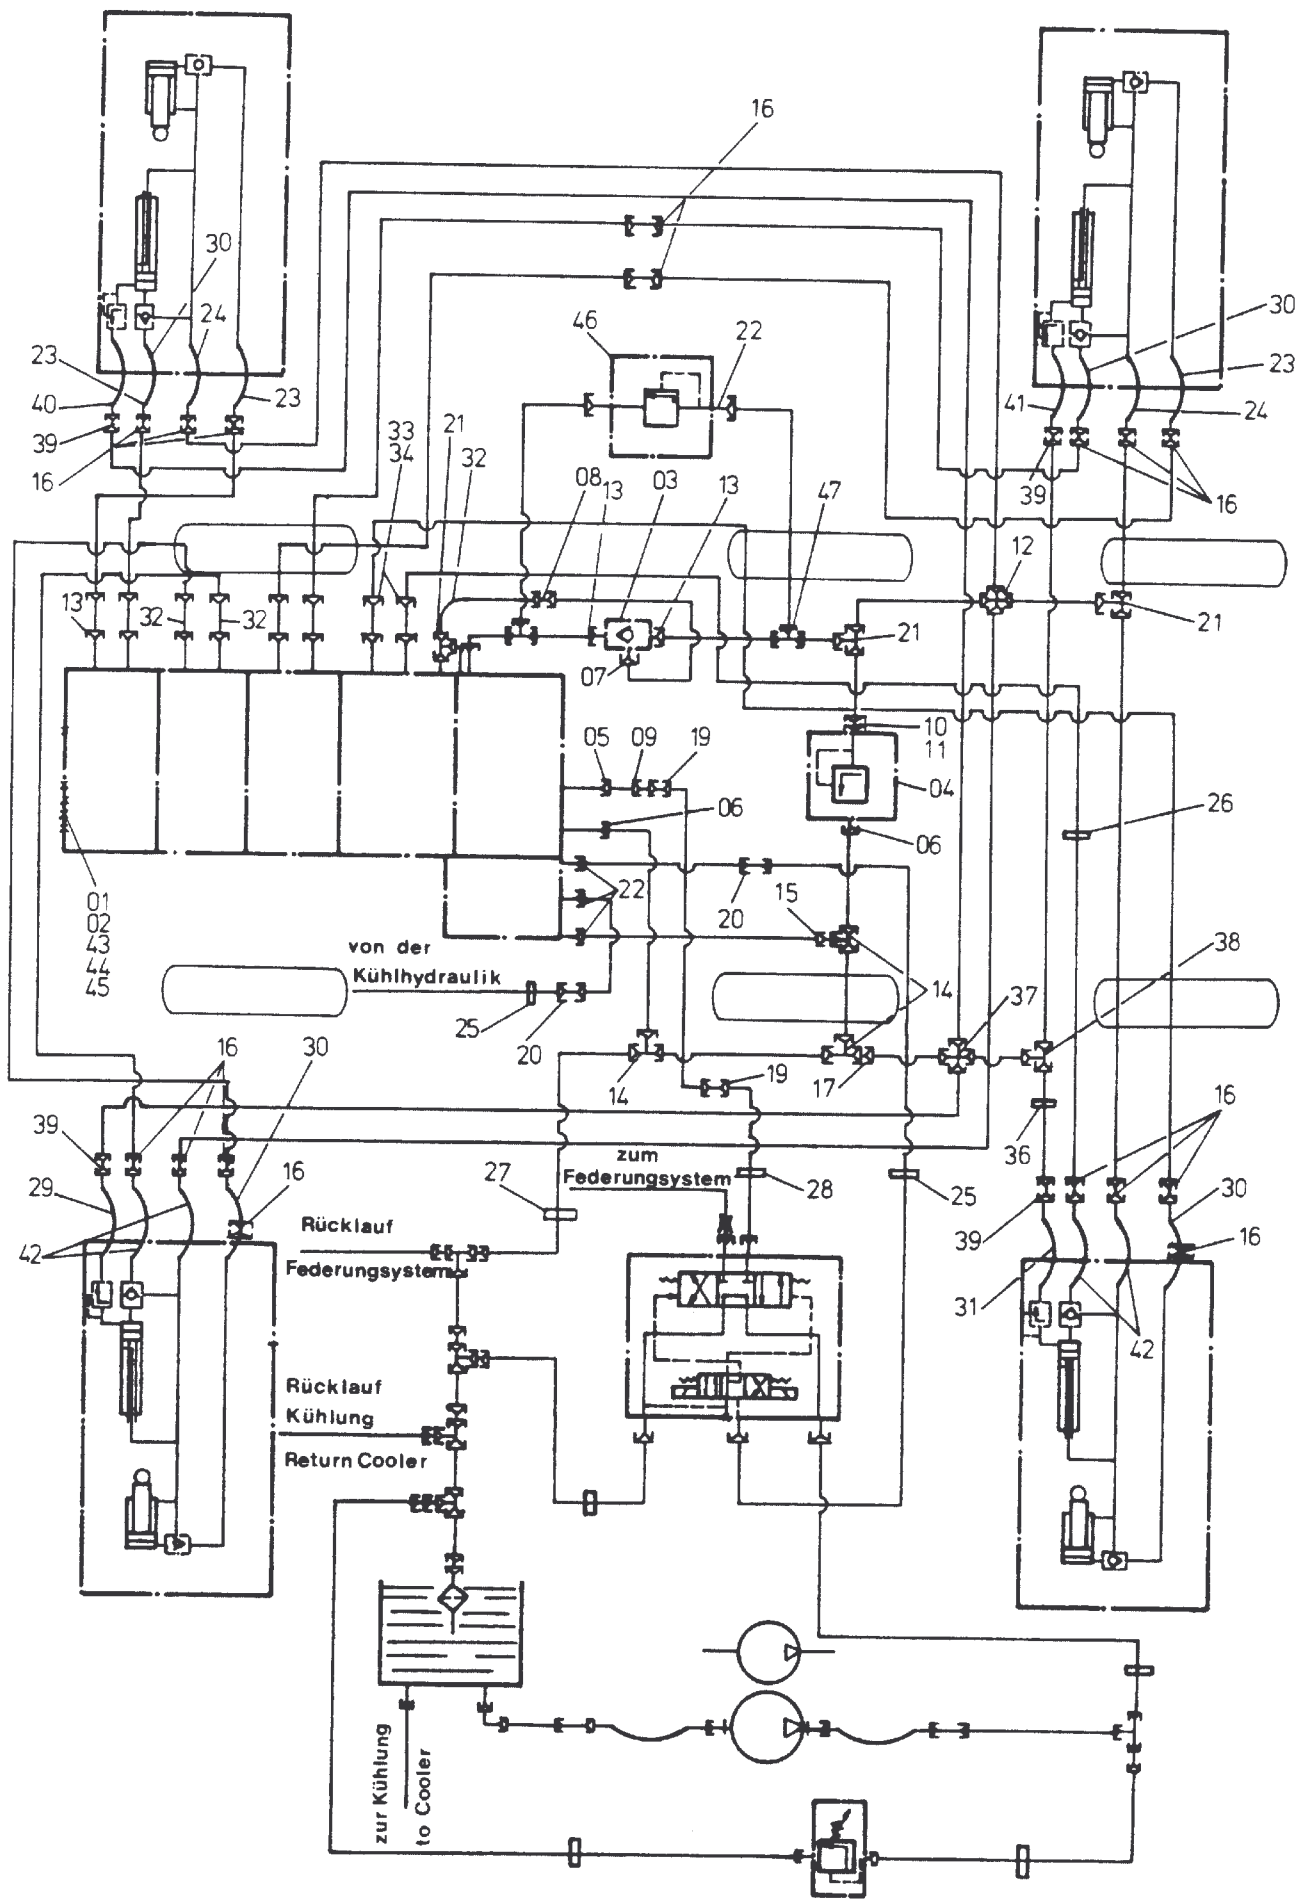 16
30
24
23
40
23
39
16
46
22
30
23
41
24
39
16
33
34
21
32
08
13
03
13
47
12
13
32
32
07
21
21
05
09
19
10
11
04
06
06
26
01
02
43
44
45
22
20
15
von der
Kühlhydraulik
25
20
14
38
37
14
17
19
16
30
39
29
42
16
27
zum
Federungsystem
28
25
36
16
39
30
16
31
42
Rücklauf
Federungsystem
Rücklauf
Kühlung
Return Cooler
zur Kühlung
to Cooler